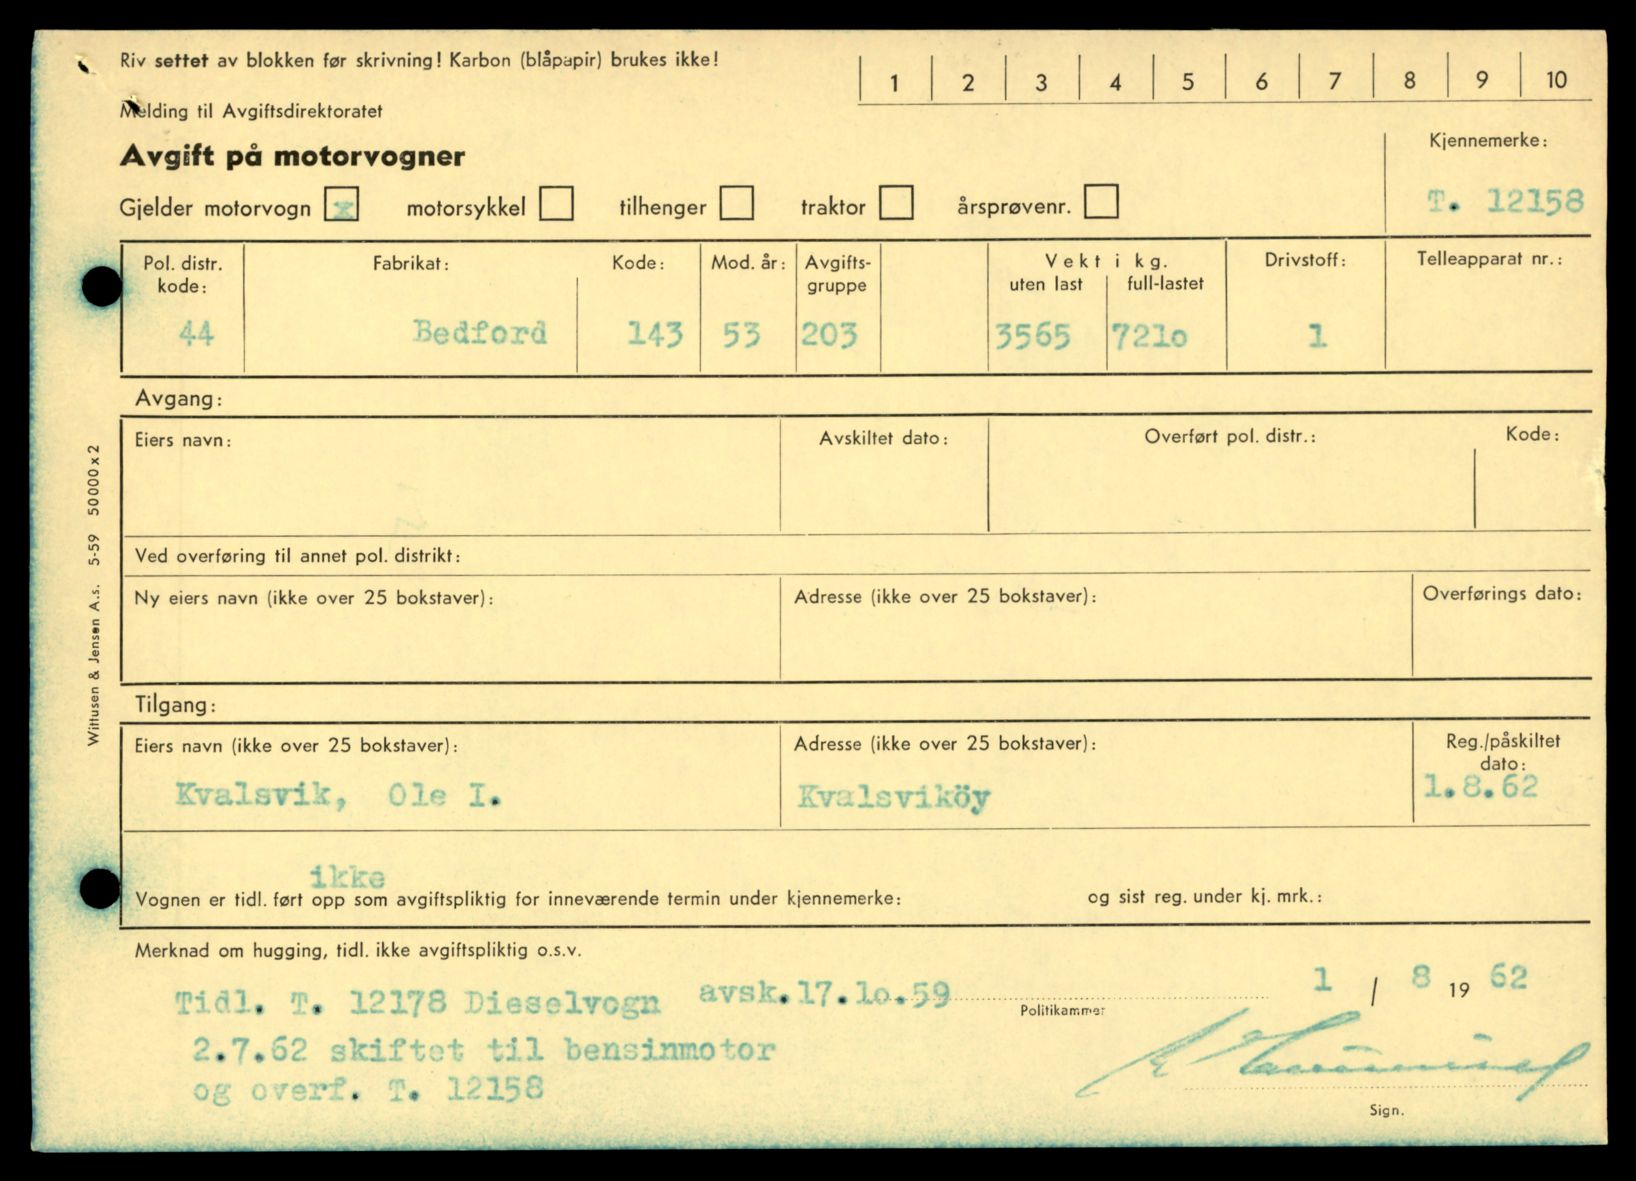 Riv settet av blokken før skrivning! Karbon (blåpapir) brukes ikke!
1 2 3 4 5 6 7 8 9 10
Melding til Avgiftsdirektoratet
Avgift på motorvogner
Kjennemerke:
T. 12158
Gjelder motorvogn x motorsykkel tilhenger traktor årsprøvenr.
Pol. distr. kode: Fabrikat: Kode: Mod. år: Avgifts-gruppe Vekt i kg. uten last full-lastet Drivstoff: Telleapparat nr.:
44 Bedford 143 53 203 3565 721o 1
Avgang:
Eiers navn: Avskiltet dato: Overført pol. distr.: Kode:
Ved overføring til annet pol. distrikt:
Ny eiers navn (ikke over 25 bokstaver): Adresse (ikke over 25 bokstaver): Overførings dato:
Tilgang:
Eiers navn (ikke over 25 bokstaver): Adresse (ikke over 25 bokstaver): Reg./påskiltet dato:
Kvalsvik, Ole I. Kvalsviköy 1.8.62
ikke
Vognen er tidl. ført opp som avgiftspliktig for inneværende termin under kjennemerke: og sist reg. under kj. mrk.:
Merknad om hugging, tidl. ikke avgiftspliktig o.s.v.
Tidl. T. 12178 Dieselvogn avsk.17.1o.59
1 / 8 19 62
Politikammer
2.7.62 skiftet til bensinmotor
og overf. T. 12158
Sign.
Wittusen & Jensen A.s. 5-59 50000 x 2